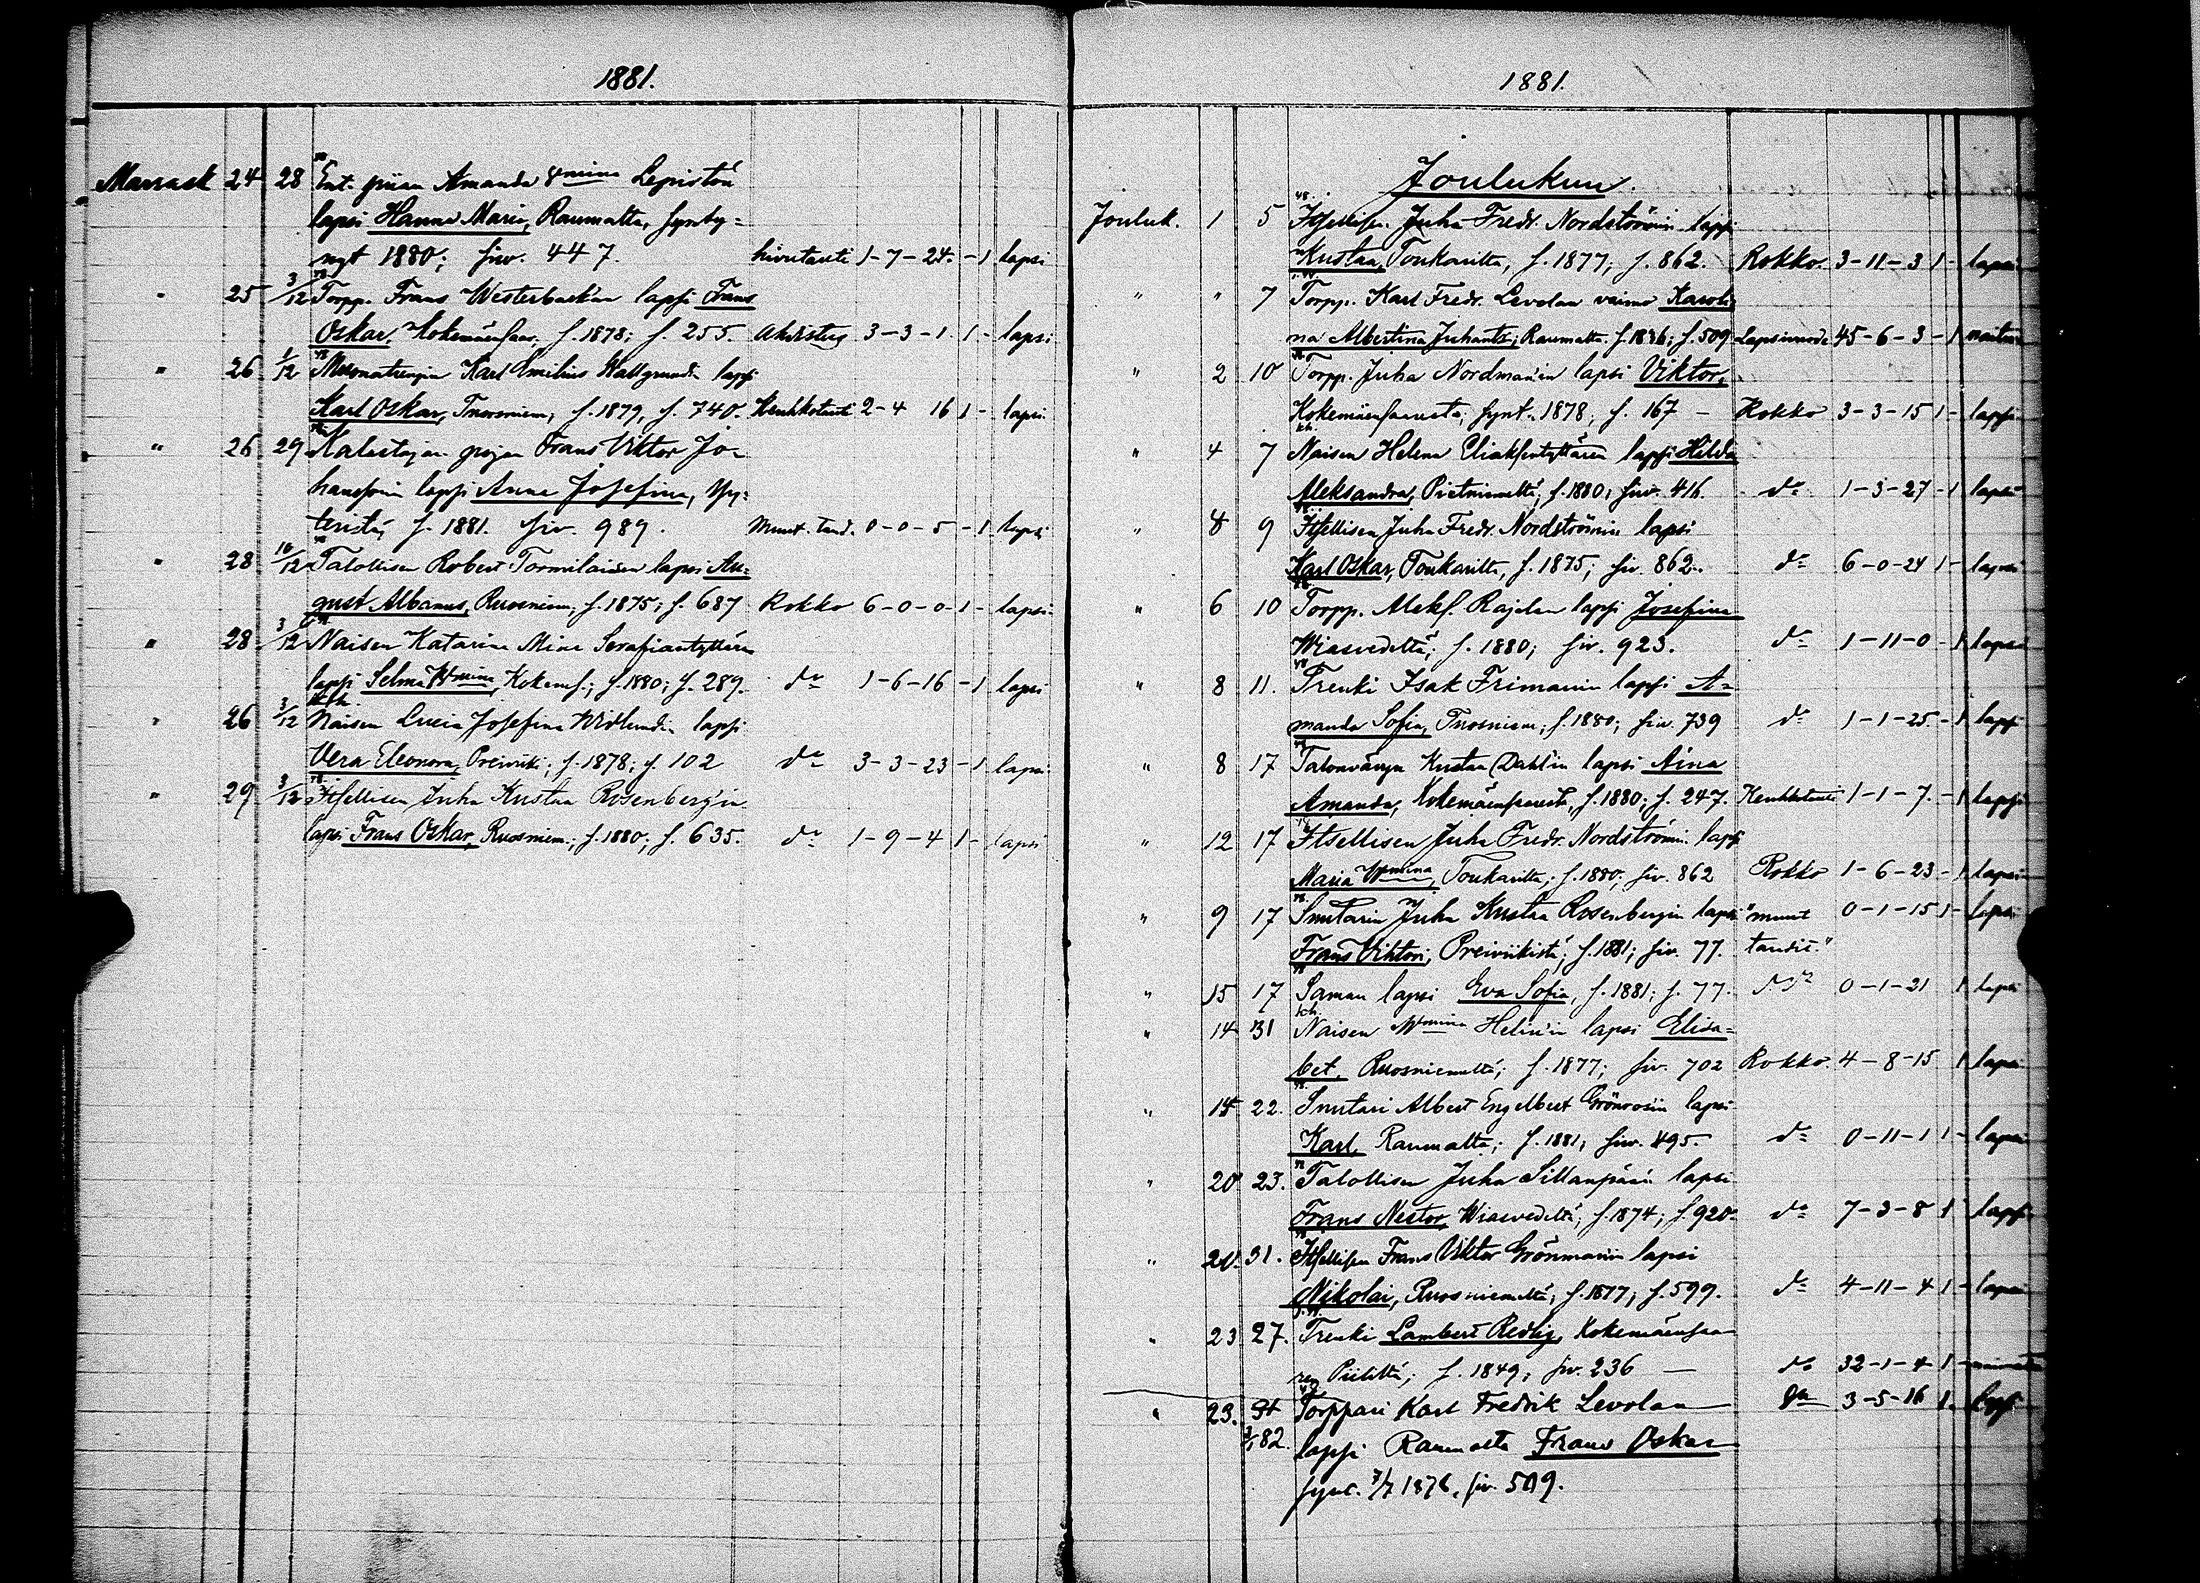 1881.
Marrask 24 28 Ent. piian Amanda Lepistön
lapsi Hanna Maria, Raumalta, synty=
nyt 1880; siv. 447. hivutauti 1-7-24 - 1 lapsi
" 25 3/12 Torpp. Frans Westerbackan lapsi Frans
Oskar, Kokemäensaar, s. 1878; s. 255. 3-3-1 1 - lapsi
" 26 1/12 Muonatrengin Karl Emilius Hallgrundin lapsi
Karl Oskar, Tuorsniem, s. 1879, s. 740. Keuhkotauti 2-4 16 1 - lapsi
" 26 29 Kalastajan pojan Frans Viktor Jo-
hanssonin lapsi Anna Josefina, Yy-
teristä, s. 1881. siv. 989. Muut. taud. 0-0-5 - 1 lapsi
" 28 10/12 Talollisen Robert Tormilaisen lapsi Au=
gust Albanus, Ruosniem, s. 1875; s. 687 Rokko 6-0-0 1 - lapsi
" 28 3/12 Naisen Katarina Mina Serafiantyttären
lapsi Selma Wmina, Kokems.; s. 1880; s. 289. do 1-6-16 - 1 lapsi
" 26 3/12 Naisen Lucia Josefina Widlundin lapsi
Vera Eleonora, Preiviik; s. 1878; s. 102 do 3-3-23 - 1 lapsi
" 29 3/12 Itsellisen Juha Kustaa Rosenbergin
lapsi Frans Oskar, Ruosniem; s. 1880; s. 635. do 1-9-4 1 - lapsi
1881.
Joulukuu.
Jouluk. 1 5 Itsellisen Juha Fredr. Nordströmin lapsi
Kustaa, Toukarilta, s. 1877; s. 862. Rokko 3-11-3 1 - lapsi
" " 7 Torpp. Karl Fredr. Levolan vaimo Karoli
na Albertina Juhant.; Raumalta. s. 1836; s. 509 Lapsivuode 45-6-3 - 1
" 2 10 Torpp. Juha Nordmanin lapsi Viktor,
Kokemäensaaresta, synt. 1878, s. 167 - Rokko 3-3-15 1 - lapsi
" 4 7 Naisen Helena Eliaksentyttären lapsi Hilda
Aleksandra, Pietniemeltä, s. 1880, siv. 416. do 1-3-27 - 1 lapsi
" 8 9 Itsellisen Juha Fredr. Nordströmin lapsi
Karl Oskar, Toukarilta, s. 1875; siv. 862. do 6-0-24 1 - lapsi
" 6 10 Torpp. Aleks. Rajalan lapsi Josefina
Wiasvedeltä; s. 1880; siv. 923. do 1-11-0 - 1 lapsi
" 8 11. Trenki Isak Frimanin lapsi A-
manda Sofia, Tuorsniem; s. 1880; siv. 739 do 1-1-25 - 1 lapsi
" 8 17 Talonvävyn Kustaa Dahl'in lapsi Aina
Amanda, Kokemäensaaresta, s. 1880; s. 247. Keuhkotauti 1-1-7. - 1 lapsi
" 12 17 Itsellisen Juha Fredr. Nordströmin lapsi
Maria Wmina, Toukarilta; s. 1880; siv. 862 Rokko 1-6-23 - 1 lapsi
" 9 17 Suutarin Juha Kustaa Rosenbergin lapsi "muut 0-1-15 1 - lapsi
Frans Vihtori, Preiviikistä; s. 1881; siv. 77. taudit."
" 15 17 Saman lapsi Eva Sofia, s. 1881; s. 77. do 0-1-21 1 lapsi
" 14 31 Naisen Wmina Helinin lapsi Elisa-
bet, Ruosniemeltä; s. 1877; siv. 702 Rokko. 4-8-15 1 lapsi
" 15 22. Suutari Albert Engelbert Grönroosin lapsi
Karl, Raumalta; s. 1881, siv. 495. do 0-11-1 1 - lapsi
" 20 23. Talollisen Juha Sillanpään lapsi
Frans Nestor, Wiasvedeltä, s. 1874; s. 920. do 7-3-8 1 lapsi
" 20 31. Itsellisen Frans Viktor Grönmanin lapsi
Nikolai, Ruosniemeltä, s. 1877, s. 599. do 4-11-4 1 - lapsi
" 23 27. Trenki Lambert Redlig, Kokemäensaa
ren Piililtä; s. 1849, siv. 236 - do 32-1-4 1 -
" 23. Torppari Karl Fredrik Levolan do 3-5-16 1. lapsi
82. lapsi Raumalta Frans Oskar
synt. 7/7 1878, siv. 509.